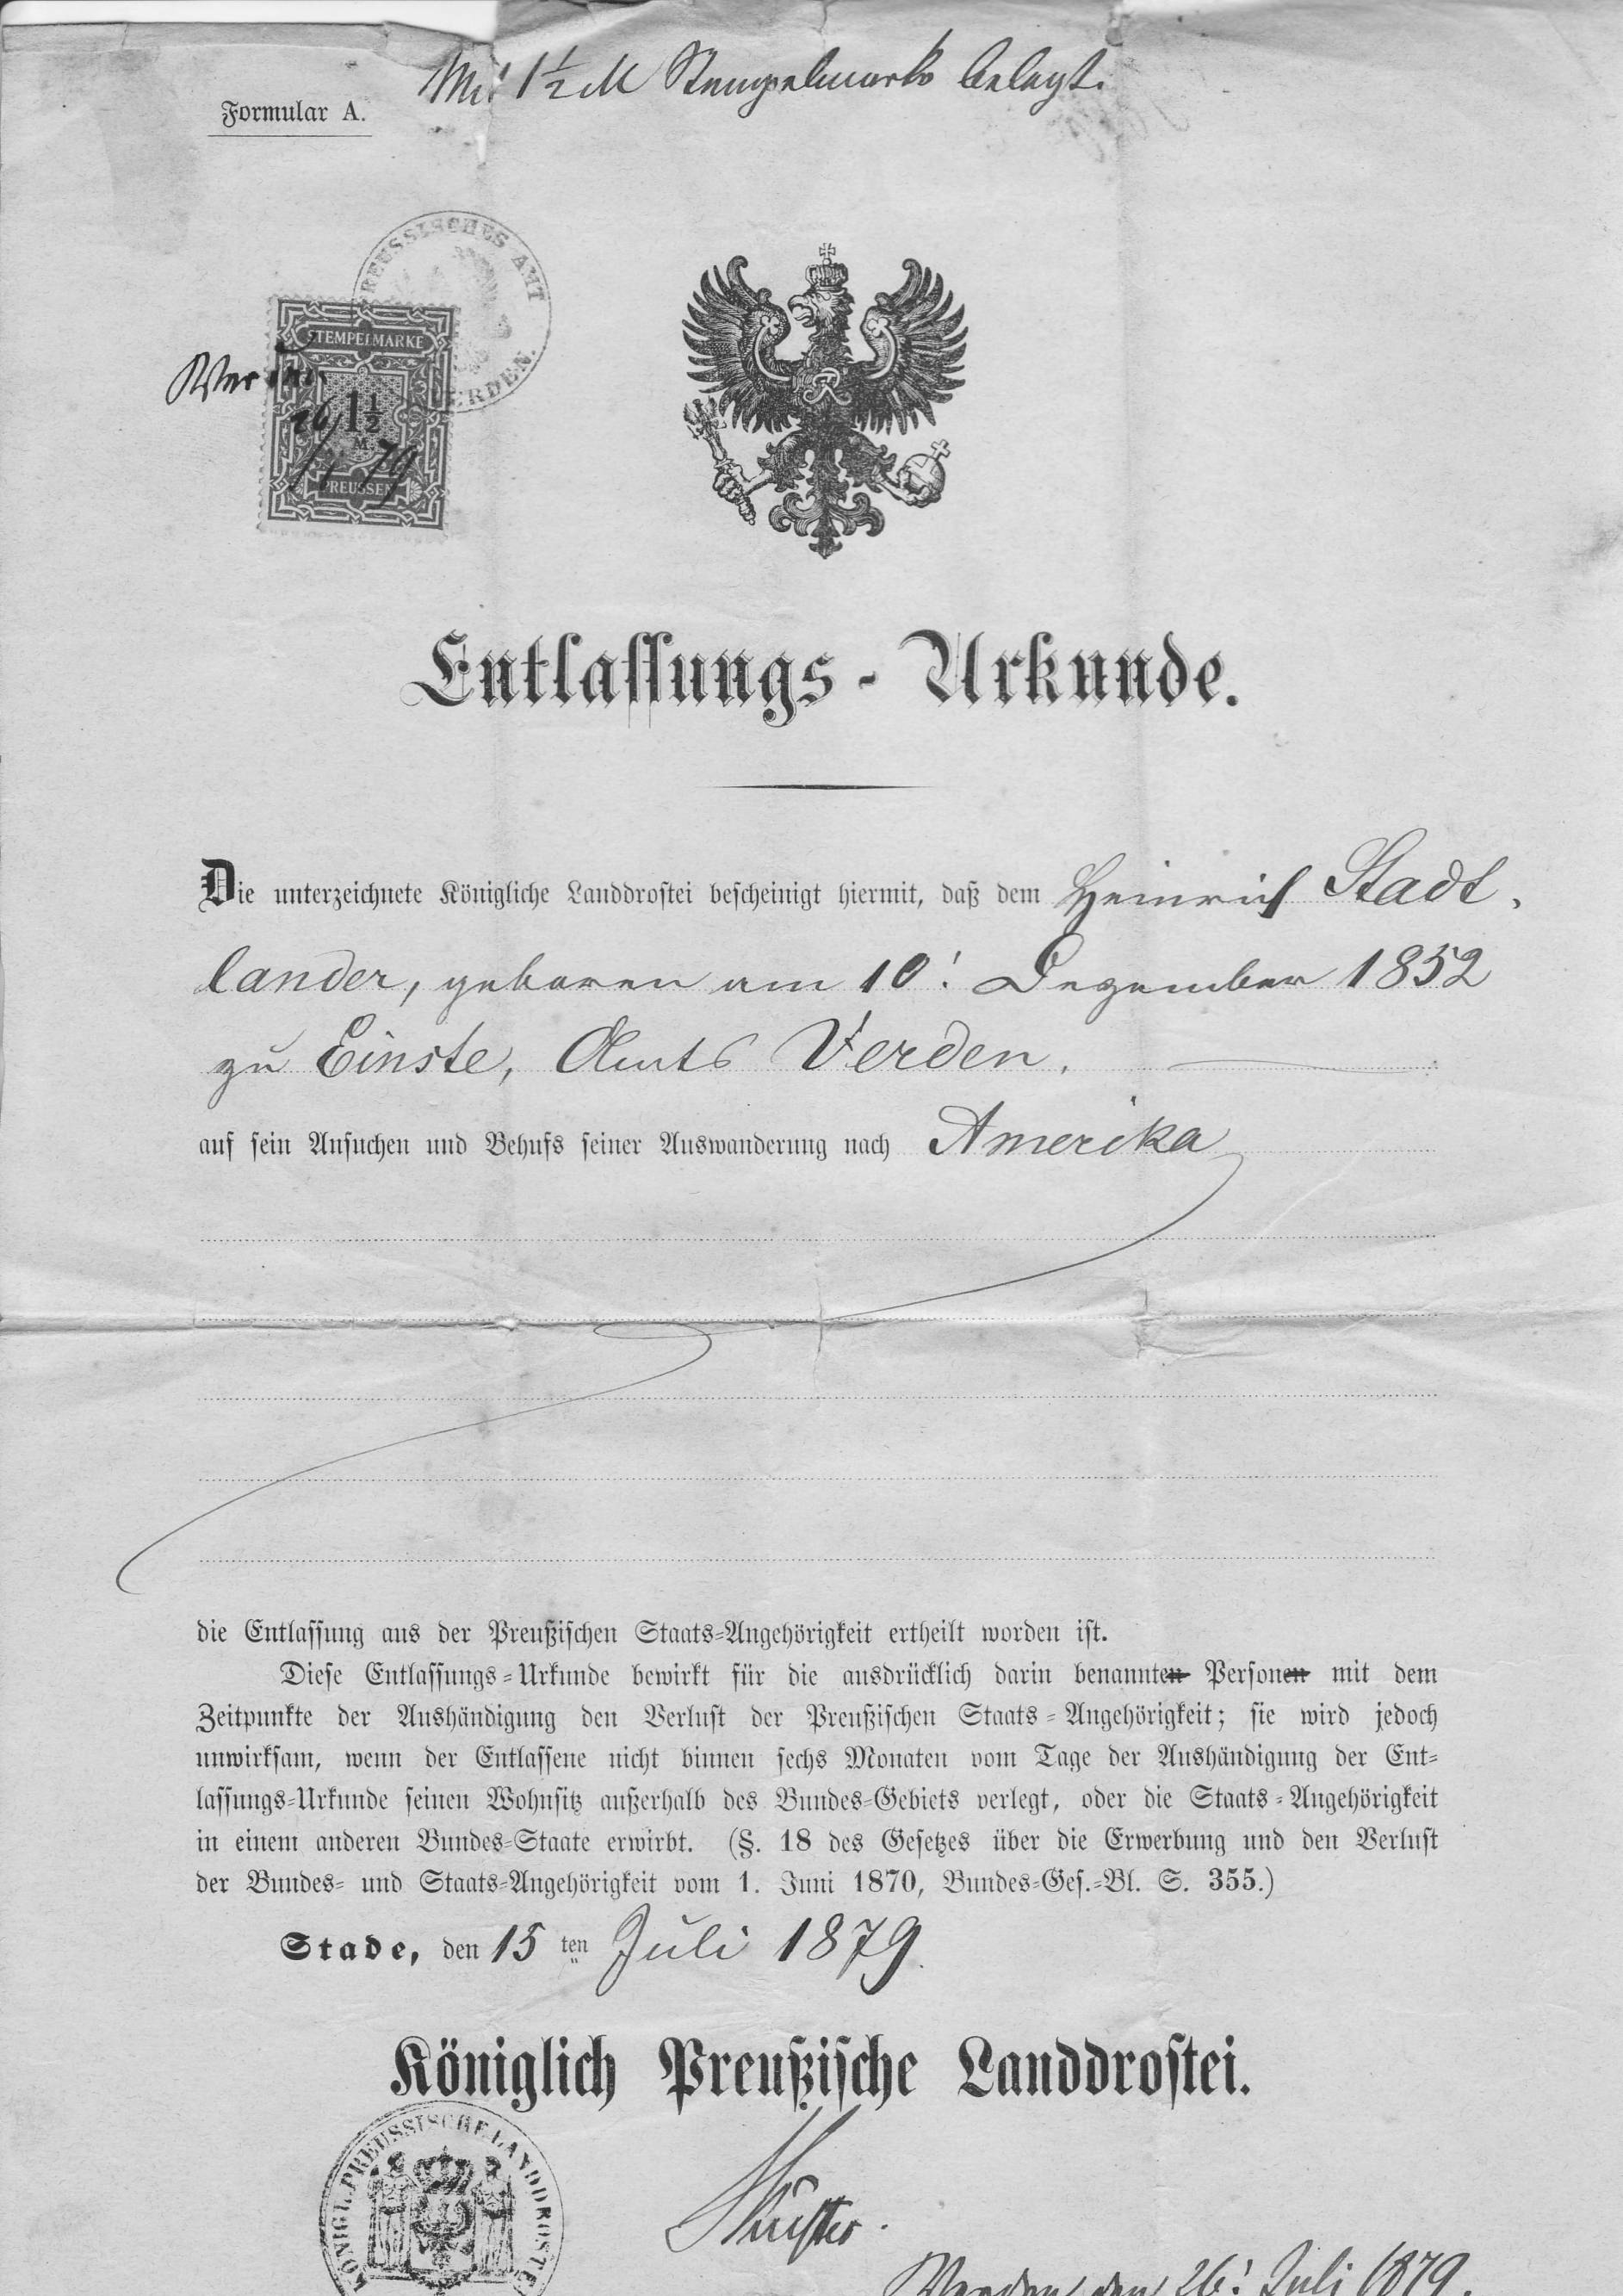 Mit 1½ M Stempelmarke belegt.
Formular A.
PREUSSISCHES AMT VERDEN.
STEMPELMARKE
Verden
26/7 79
1½
M
PREUSSEN
Entlassungs - Urkunde.
Die unterzeichnete Königliche Landdrostei bescheinigt hiermit, daß dem Heinrich Stadt-
lander, geboren am 10. Dezember 1852
zu Einste, Amts Verden.
auf sein Ansuchen und Behufs seiner Auswanderung nach Amerika
die Entlassung aus der Preußischen Staats-Angehörigkeit ertheilt worden ist.
Diese Entlassungs-Urkunde bewirkt für die ausdrücklich darin benannten Personen mit dem
Zeitpunkte der Aushändigung den Verlust der Preußischen Staats-Angehörigkeit; sie wird jedoch
unwirksam, wenn der Entlassene nicht binnen sechs Monaten vom Tage der Aushändigung der Ent-
lassungs-Urkunde seinen Wohnsitz außerhalb des Bundes-Gebiets verlegt, oder die Staats-Angehörigkeit
in einem anderen Bundes-Staate erwirbt. (§. 18 des Gesetzes über die Erwerbung und den Verlust
der Bundes- und Staats-Angehörigkeit vom 1. Juni 1870, Bundes-Ges.-Bl. S. 355.)
Stade, den 15ten Juli 1879.
Königlich Preußische Landdrostei.
KÖNIGL. PREUSSISCHE LANDDROSTEI
Verden, den 26. Juli 1879.